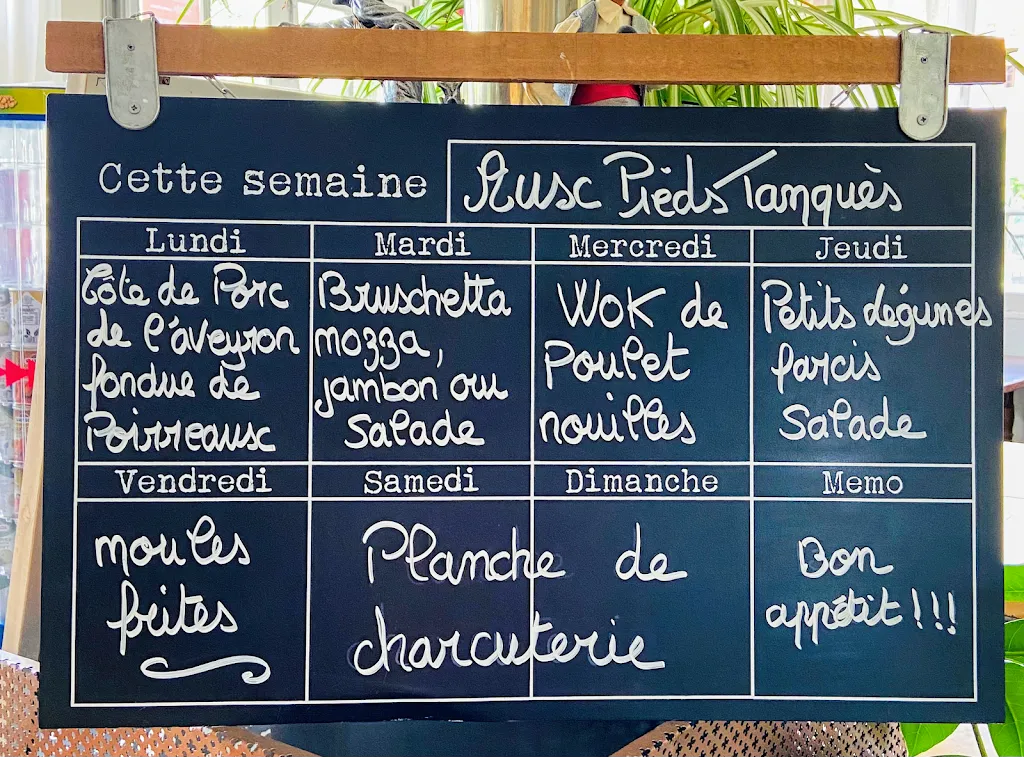 Cette semaine
Ausc Pièds Tanquès
Lundi
Côte de Porc
de l'aveyron
fondue de
Poirreausc
Mardi
Bruschetta
mozza,
jambon ou
Salade
Mercredi
Wok de
Poulet
nouilles
Jeudi
Petits légumes
farcis
Salade
Vendredi
moules
frites
Samedi
Dimanche
Planche de
charcuterie
Memo
Bon
appétit !!!